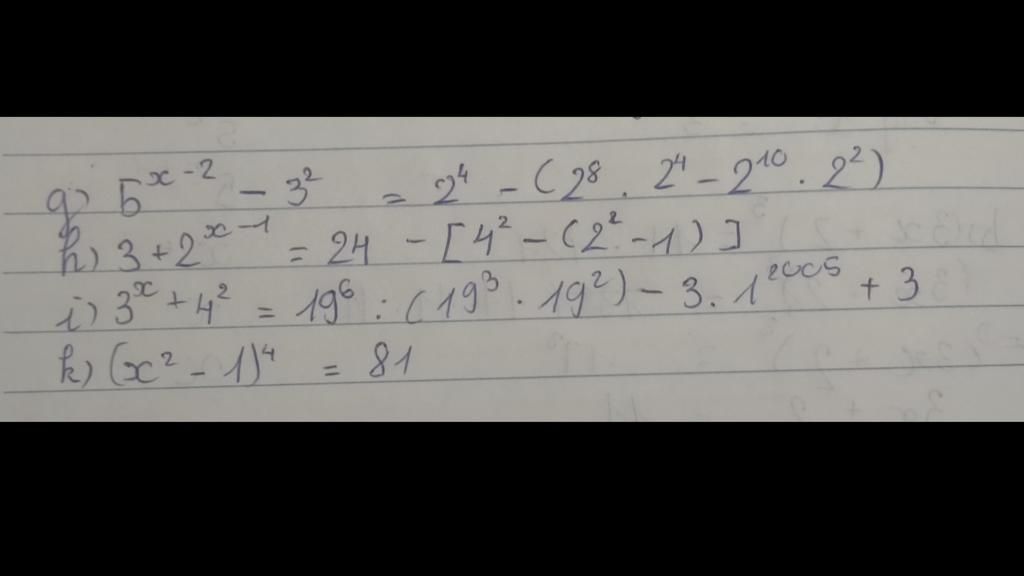 g) 5^(x-2) - 3² = 2⁴ - (2⁸ . 2⁴ - 2¹⁰ . 2²)
h) 3 + 2^(x-1) = 24 - [4² - (2² - 1)]
i) 3^x + 4² = 19⁶ : (19³ . 19²) - 3 . 1²⁰⁰⁵ + 3
k) (x² - 1)⁴ = 81